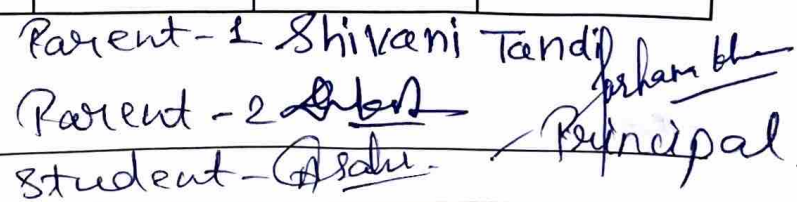 Parent-1 Shivani Tandi
Parent-2
Student- Asahu.
Principal